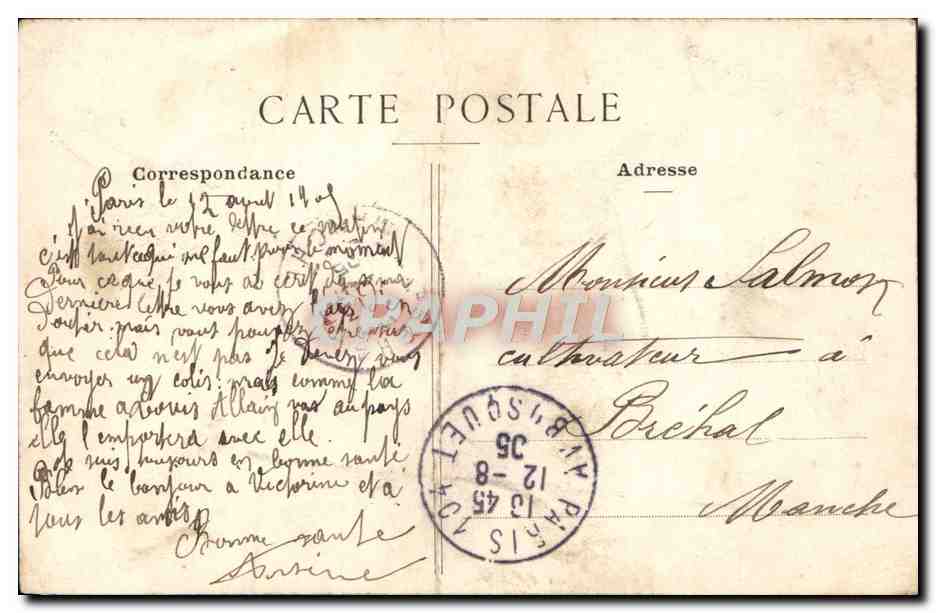 CARTE POSTALE
Correspondance
Paris le 12 aout 1905
J'ai reçu votre lettre ce matin
c'est tout ce qui me faut pour le moment
Pour ce que je vous ai ecrit
derniere lettre vous avez l'air d'en
douter mais vous pouvez
que cela n'est pas Je devez vous
envoyer un colis mais comme la
famme a Louis Allain vas au pays
elle l'emportera avec elle.
Je suis toujours en bonne santé
Bien le bonjour a Victorine et a
tous les amis
Bonne santé
Arsène
Adresse
Monsieur Salmon
cultivateur à
Bréhal
Manche
PARIS 104 AV BOSQUET
13 45
12 - 8
05
CPAPHIL